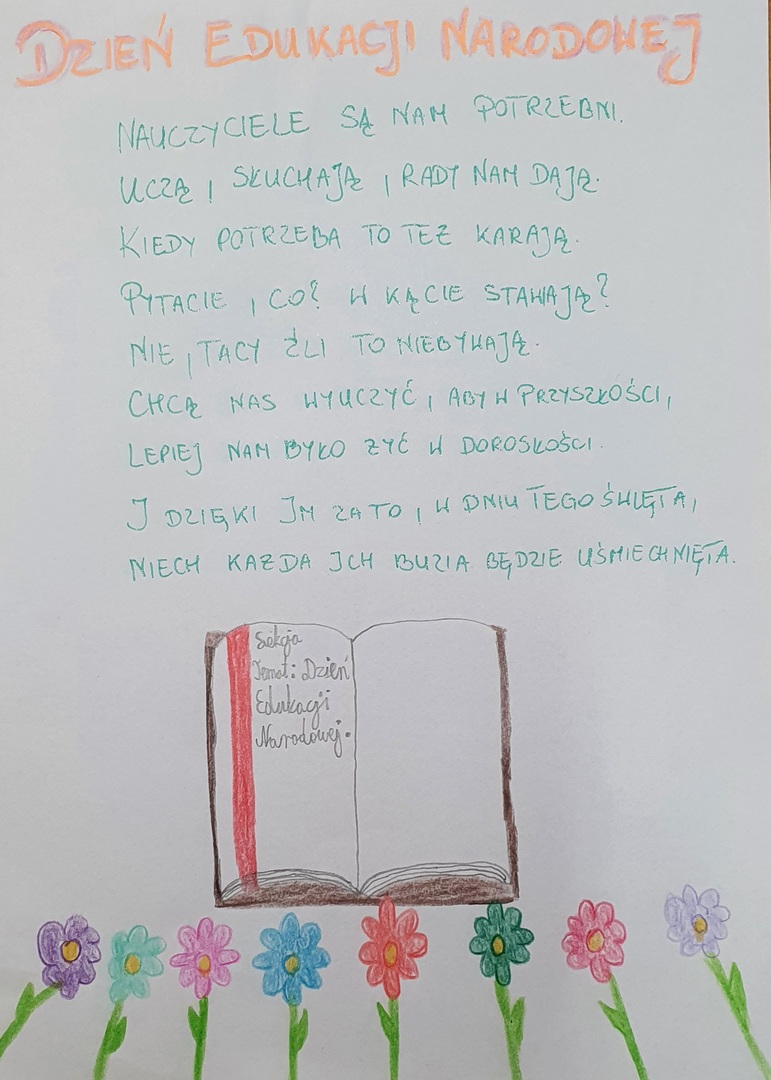 DZIEŃ EDUKACJI NARODOWEJ
NAUCZYCIELE SĄ NAM POTRZEBNI.
UCZĄ, SŁUCHAJĄ, RADY NAM DAJĄ.
KIEDY POTRZEBA TO TEŻ KARAJĄ.
PYTACIE, CO? W KĄCIE STAWAJĄ?
NIE, TACY ŹLI TO NIEBYWAJĄ.
CHCĄ NAS WYUCZYĆ, ABY W PRZYSZŁOŚCI,
LEPIEJ NAM BYŁO ŻYĆ W DOROSŁOŚCI.
I DZIĘKI IM ZA TO, W DNIU TEGO ŚWIĘTA,
NIECH KAŻDA ICH BUZIA BĘDZIE UŚMIECHNIĘTA.
Lekcja
Temat: Dzień
Edukacji
Narodowej.